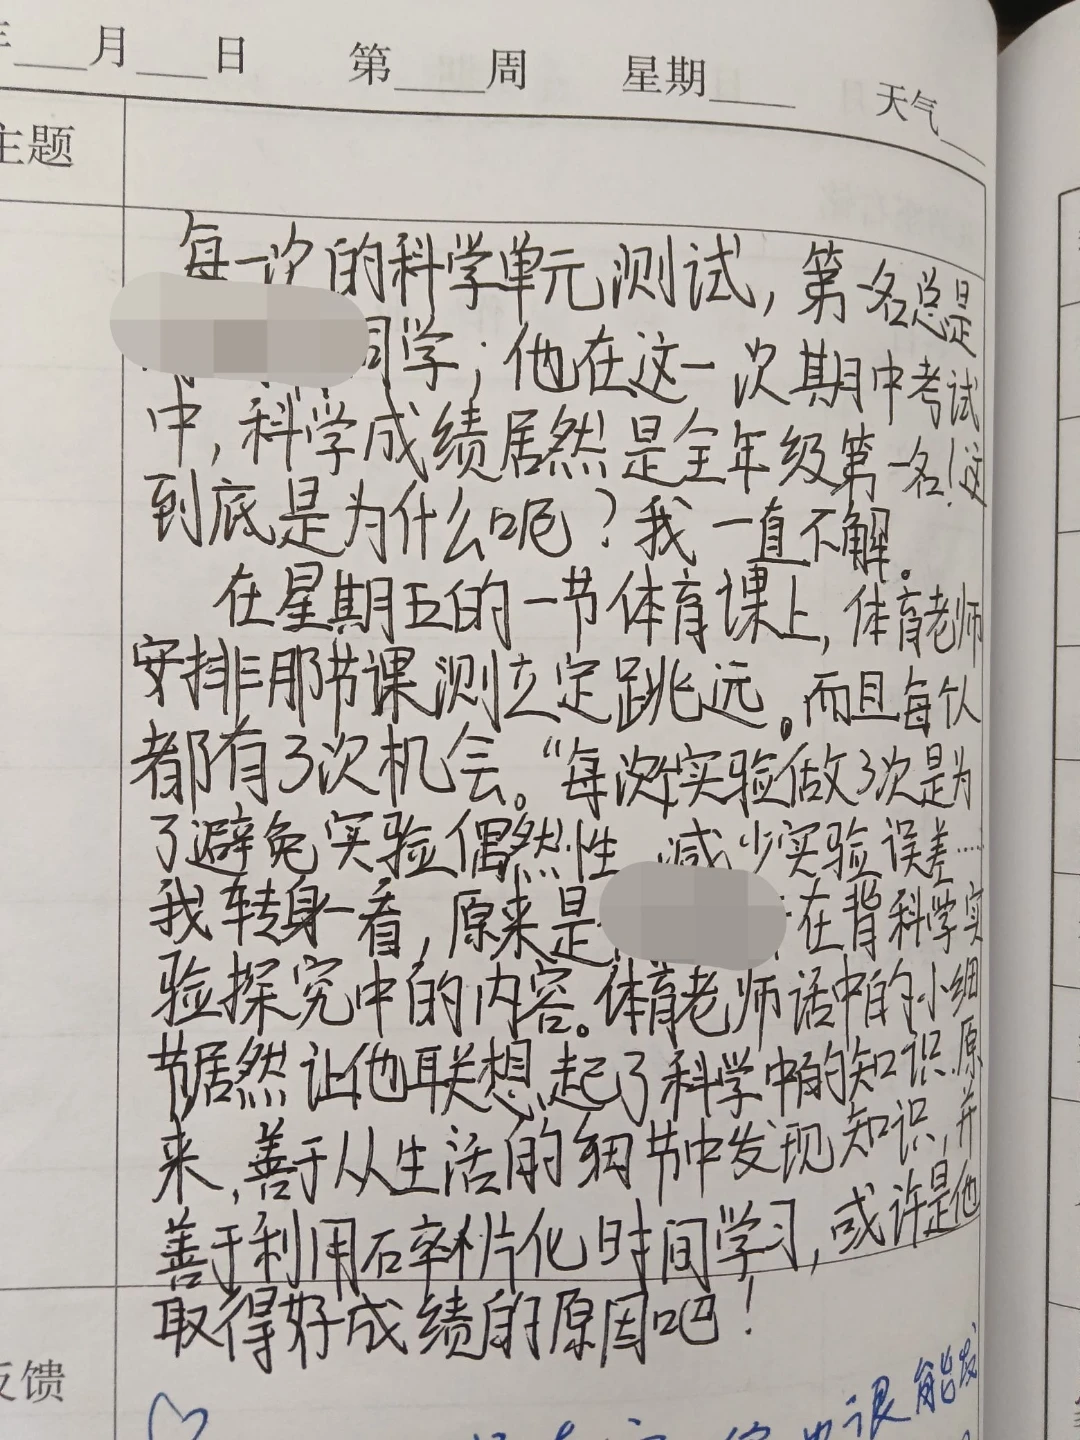 年____月____日 第____周 星期____ 天气__
主题
每一次的科学单元测试，第一名总是
同学；他在这一次期中考试
中，科学成绩居然是全年级第一名！这
到底是为什么呢？我一直不解。
在星期五的一节体育课上，体育老师
安排那节课测立定跳远。而且每个人
都有3次机会。“每次实验做3次是为
了避免实验偶然性，减少实验误差……
我转身一看，原来是 在背科学实
验探究中的内容。体育老师话中的小细
节居然让他联想起了科学中的知识。原
来，善于从生活的细节中发现知识，并
善于利用碎片化时间学习，或许是他
取得好成绩的原因吧！
反馈
很能发